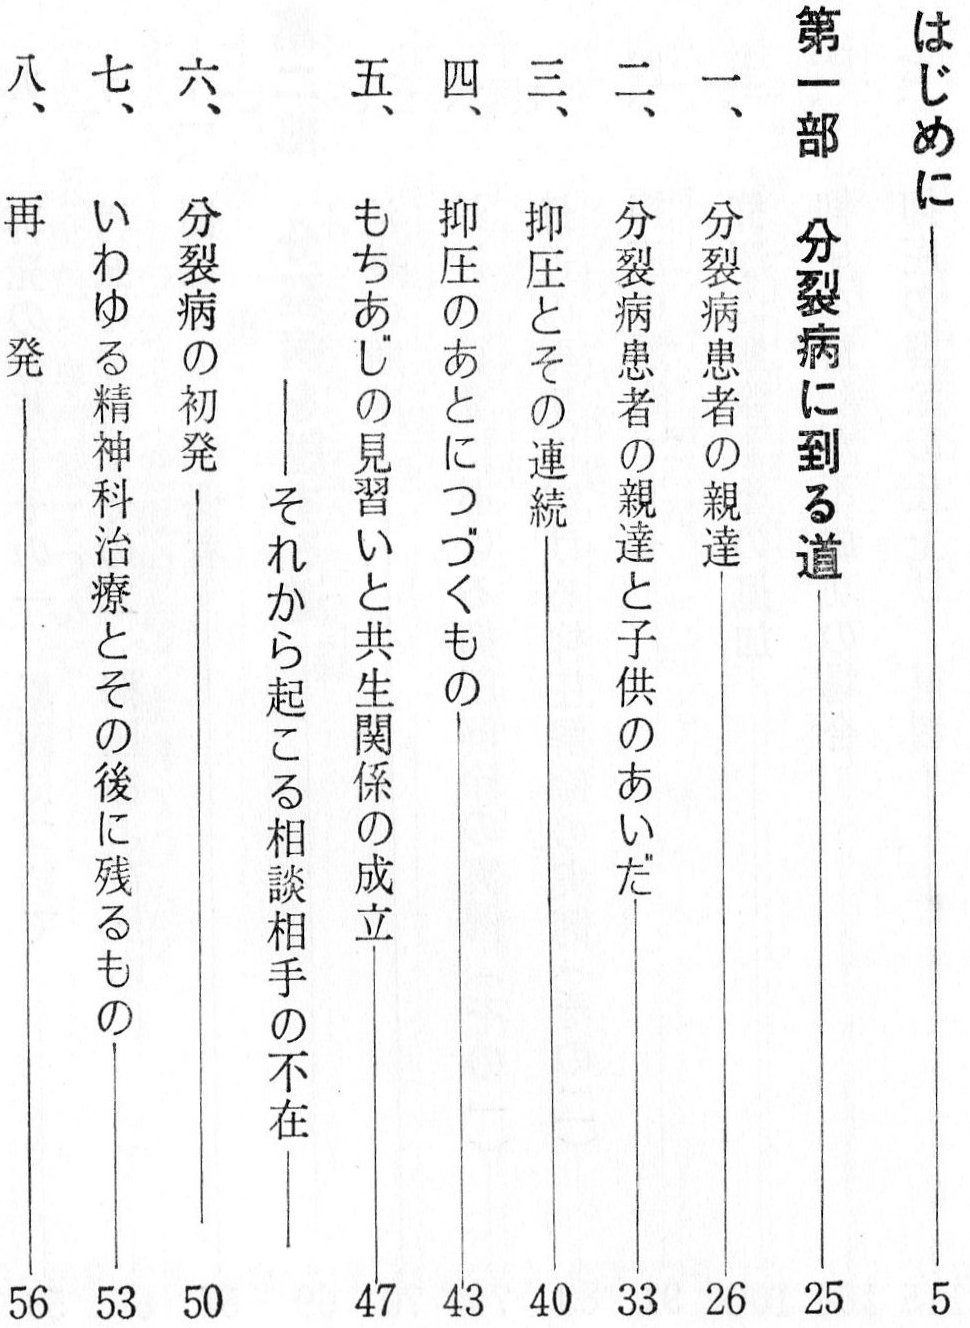 はじめに――― 5
第一部 分裂病に到る道――― 25
一、 分裂病患者の親達――― 26
二、 分裂病患者の親達と子供のあいだ――― 33
三、 抑圧とその連続――― 40
四、 抑圧のあとにつづくもの――― 43
五、 もちあじの見習いと共生関係の成立――― 47
――それから起こる相談相手の不在――
六、 分裂病の初発――― 50
七、 いわゆる精神科治療とその後に残るもの――― 53
八、 再発――― 56